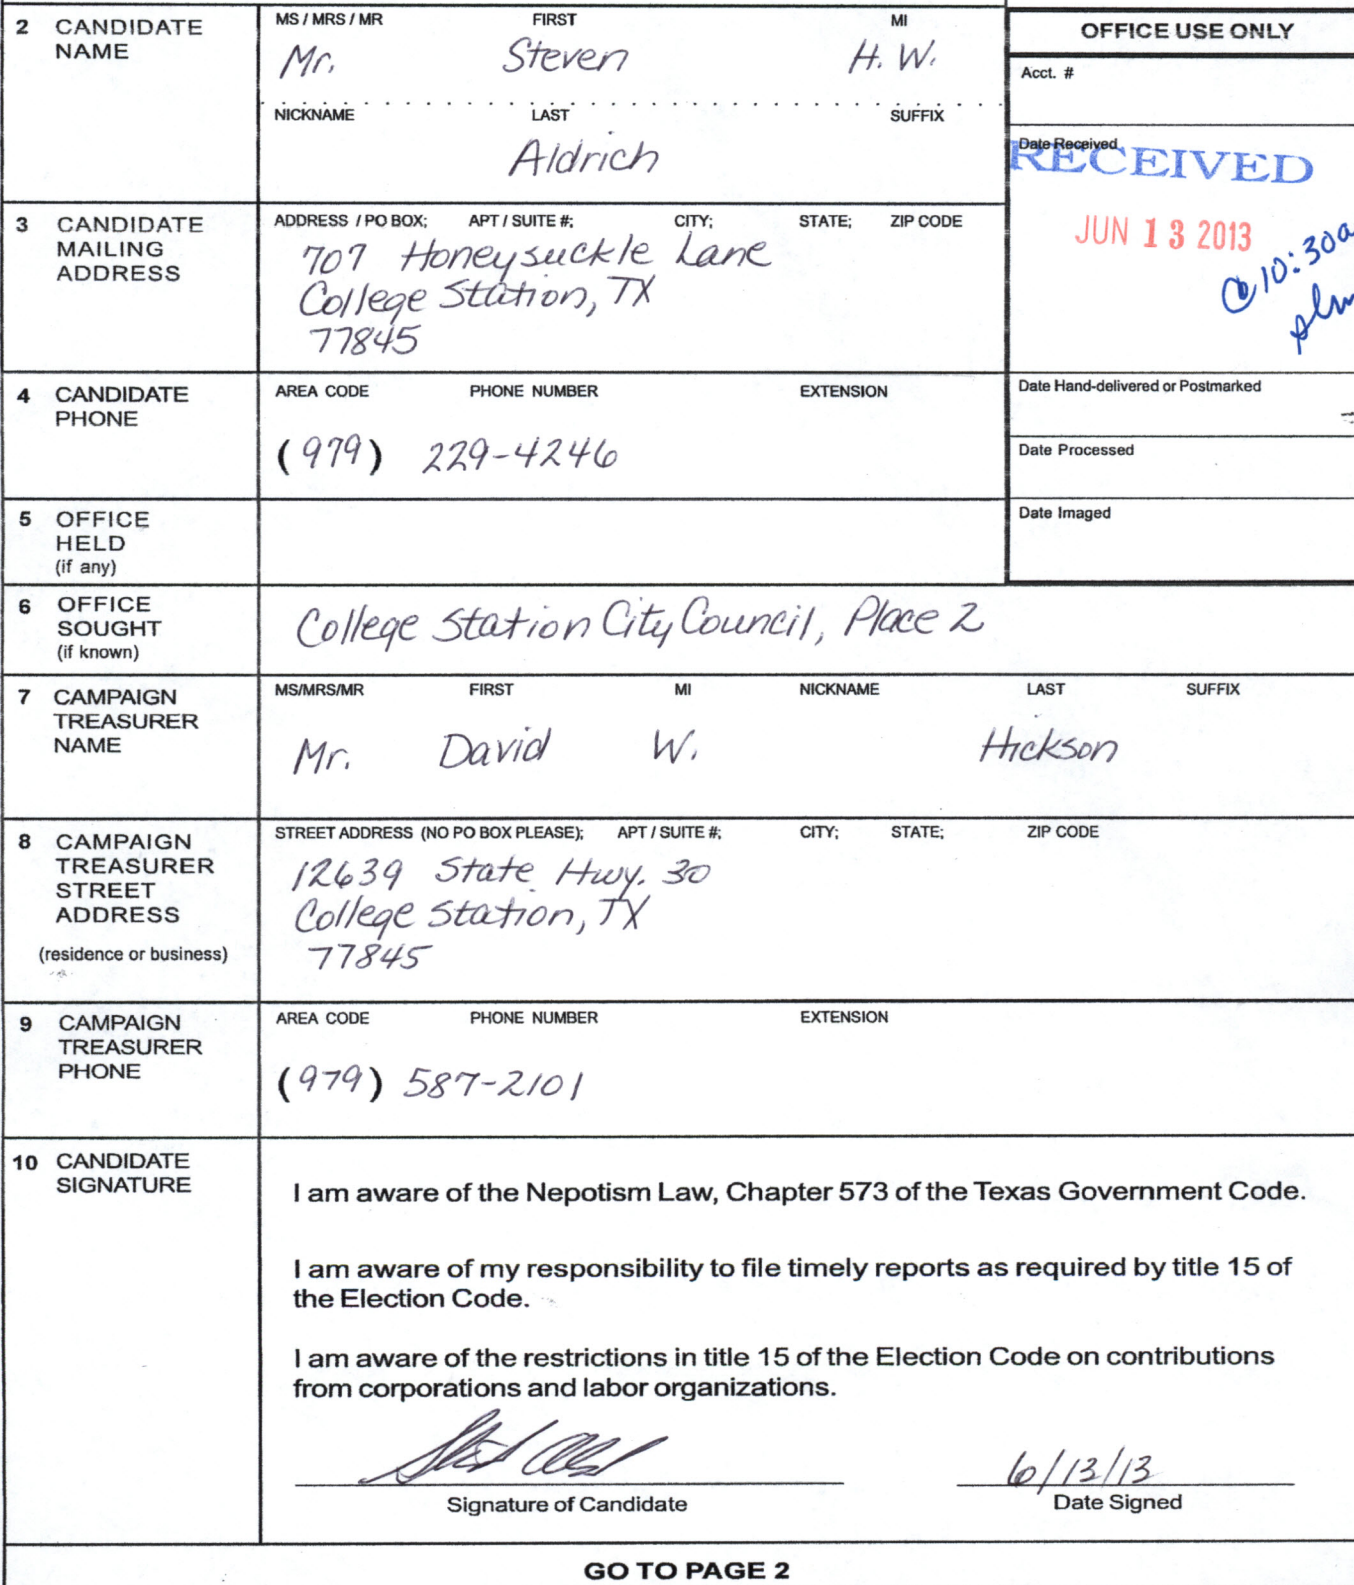 2 CANDIDATE NAME
MS / MRS / MR FIRST MI
Mr. Steven H. W.
NICKNAME LAST SUFFIX
Aldrich
OFFICE USE ONLY
Acct. #
Date Received
RECEIVED
JUN 13 2013
@ 10:30a
3 CANDIDATE MAILING ADDRESS
ADDRESS / PO BOX; APT / SUITE #; CITY; STATE; ZIP CODE
707 Honeysuckle Lane
College Station, TX
77845
4 CANDIDATE PHONE
AREA CODE PHONE NUMBER EXTENSION
(979) 229-4246
Date Hand-delivered or Postmarked
Date Processed
Date Imaged
5 OFFICE HELD
(if any)
6 OFFICE SOUGHT
(if known)
College Station City Council, Place 2
7 CAMPAIGN TREASURER NAME
MS/MRS/MR FIRST MI NICKNAME LAST SUFFIX
Mr. David W. Hickson
8 CAMPAIGN TREASURER STREET ADDRESS
(residence or business)
STREET ADDRESS (NO PO BOX PLEASE); APT / SUITE #; CITY; STATE; ZIP CODE
12639 State Hwy. 30
College Station, TX
77845
9 CAMPAIGN TREASURER PHONE
AREA CODE PHONE NUMBER EXTENSION
(979) 587-2101
10 CANDIDATE SIGNATURE
I am aware of the Nepotism Law, Chapter 573 of the Texas Government Code.
I am aware of my responsibility to file timely reports as required by title 15 of
the Election Code.
I am aware of the restrictions in title 15 of the Election Code on contributions
from corporations and labor organizations.
6/13/13
Signature of Candidate Date Signed
GO TO PAGE 2